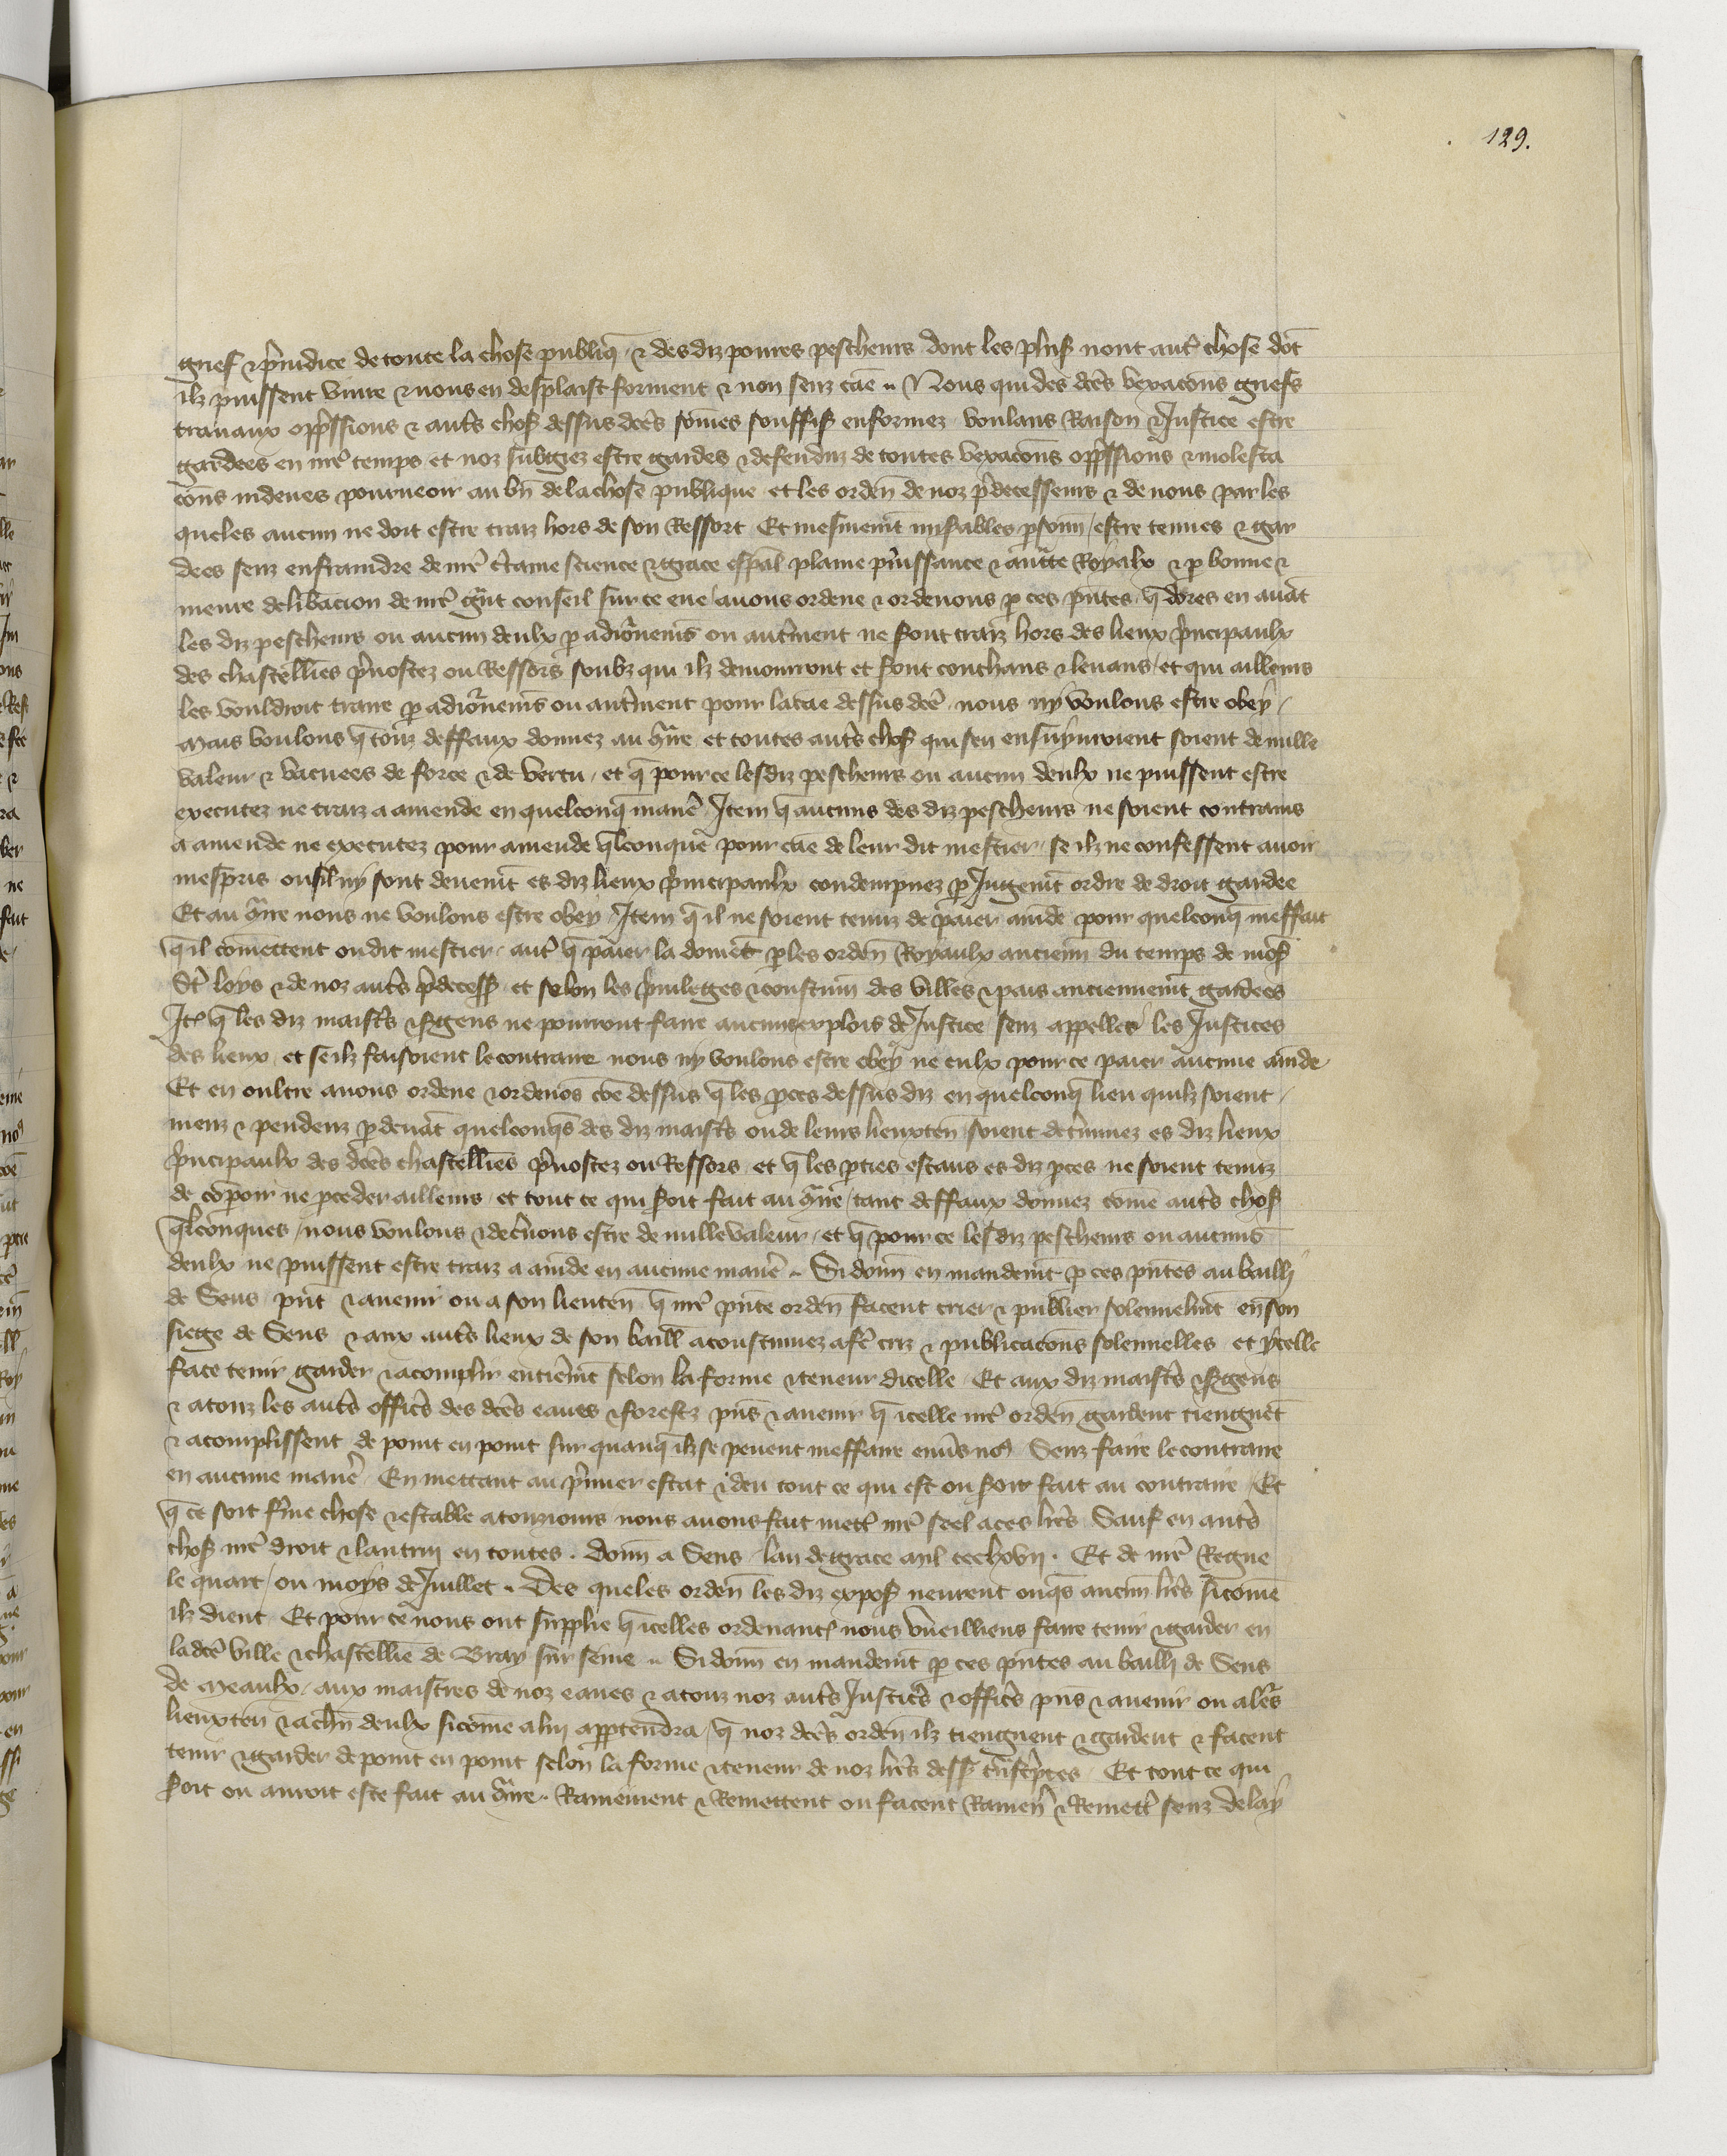 129.
grief & p̃iudice de toute la chose publiq̃ & des diz poures pescheurs dont les plus nont aut̃ chose dõt
ilz puissent viure & nous en desplaist forment & non senz cãe Nous qui des dc̃es vexac̃ons griefs
trauaux opp̃ssions & aut̃s chos dessus dc̃es som̃es souffis enformez voulans Raison & Justice estre
gardees en nr̃e temps et noz subgiez estre gardes & defenduz de toutes vexac̃ons opp̃ssions & molesta
c̃ons indeues pourueoir au bñ de la chose publique et les ordeñ de noz p̃decesseurs & de nous par les
queles aucun ne doit estre traiz hors de son Ressort Et mesmem̃t mis̃ables p̃soñ estre tenues & gar
dees senz enfraindre de nr̃e c̃taine science & grace esp̃al plaine puissance & auc̃te Royalx & p̃ bonne &
meure delib̃acion de nr̃e g̃nt conseil sur ce eue auons ordene & ordenons p̃ ces p̃ntes q̃ dores en auãt
les diz pescheurs ou aucun deulx p̃ adiõnemẽs ou aut̃ment ne sont traiz hors des lieux p̃ncipaulx
des chastellĩes p̃uostez ou Ressors soubz qui ilz demourront et sont couchans & leuans et qui ailleurs
les vouldroit traire p̃ adiõnemẽs ou aut̃ment pour la cãe dessus dc̃e nous ny voulons estre obey
Mais voulons q̃ touz deffaux donnez au c̃̃ire et toutes aut̃s chos qui sen ensuyuroient soient de nulle
valeur & vacuees de force & de vertu et q̃ pour ce lesdiz pescheurs ou aucun deulx ne puissent estre
executez ne traiz a amende en quelconq̃ manẽ Item q̃ aucuns des diz pescheurs ne soient contrains
a amende ne executez pour amende q̃lconque pour cãe de leur dit mestier se ilz ne confessent auoir
mespris ou sil ny sont deuem̃t es diz lieux p̃ncipaulx condempnez p̃ Jugem̃t ordre de droit gardee
Et au c̃ire nous ne voulons estre obey Item q̃ il ne soient tenuz de paier am̃de pour quelconq̃ meffait
q̃ il com̃ettent ou dit mestier aut̃ q̃ paier la doiuẽt p̃ les ordeñ Royaulx ancieñ du temps de mos̃
St̃ Loys & de noz aut̃s p̃decess̃ et selon les p̃uileges & coustum̃ des villes & pais anciennem̃t gardees
It̃ q̃ les diz maist̃s & s̃gens ne pourront faire aucuns exploiz de Justice senz appelles les Justices
des lieux et se ilz faisoient le contraire nous ny voulons estre obey ne eulx pour ce paier aucune am̃de
Et en oultre auons ordene & ordenõs cõe dessus q̃ les p̃ces dessus diz en quelconq̃ lieu quilz soient
meuz & pendenz p̃ deuãt quelconq̃s des diz maist̃s ou de leurs lieuxteñ soient det̃minez es diz lieux
p̃ncipaulx des dc̃es chastellĩes p̃uostez ou Ressors et q̃ les p̃ties estans es diz p̃ces ne soient tenuz
de com̃poir ne p̃ceder ailleurs et tout ce qui soit fait au c̃ire tant deffaux donnez com̃e aut̃s chos
q̃lconques nous voulons & dec̃nons estre de nulle valeur et q̃ pour ce les diz pescheurs ou aucuns
deulx ne puissent estre traiz a am̃de en aucune manẽ Si donñ en mandem̃t p̃ ces p̃ntes au bailli
de Sens p̃nt & auenir ou a son lieuteñ q̃ nr̃e p̃nte ordeñ facent crier & publier solennelm̃t en son
siege de Sens & aux aut̃s lieux de son baill̃ acoustumez a f̃e criz & publicac̃ons solennelles et ycelle
face tenir garder & acomplir entierem̃t selon la forme & teneur dicelle Et aux diz maist̃s & s̃gens
& a touz les aut̃s offic̃s des dc̃es eaues & forestz p̃ns & auenir q̃ icelle nr̃e ordeñ gardent tiengnẽt
& acomplissent de point en point sur quanq̃ ilz se peuent meffaire enũs noꝰ Senz faire le contraire
en aucune manẽ En mettant au p̃mier estat & deu tout ce qui est ou soit fait au contraire Et
q̃ ce soit f̃me chose & estable a touziours nous auons fait mett̃ nr̃e seel a ces lr̃es Sauf en aut̃s
chos nr̃e droit & lautruy en toutes. Donñ a Sens lan de grace mil ccclxvij. Et de nr̃e Regne
le quart ou moys de Juillet Des queles ordeñ les diz expos̃ neurent onq̃s aucuñ lr̃es sicom̃e
ilz dient Et pour ce nous ont supplie q̃ icelles ordenanc̃ nous vueilliens faire tenir & garder en
ladc̃e ville & chastellĩe de Bray sur Seine Si donñ en mandem̃t p̃ ces p̃ntes au bailli de Sens
de Meaulx aux maistres de noz eaues & a touz noz aut̃s Justic̃s & offic̃s p̃ns & auenir ou a leurs
lieuxteñ & a chñ deulx sicom̃e a luy app̃tendra q̃ noz dc̃es ordeñ ilz tiengnent & gardent & facent
tenir & garder de point en point selon la forme & teneur de noz lr̃es dess̃ t̃nsc̃ptes Et tout ce qui
soit ou auroit este fait au c̃ire Ramenent & Remettent ou facent Rameñ & Remett̃ senz delay